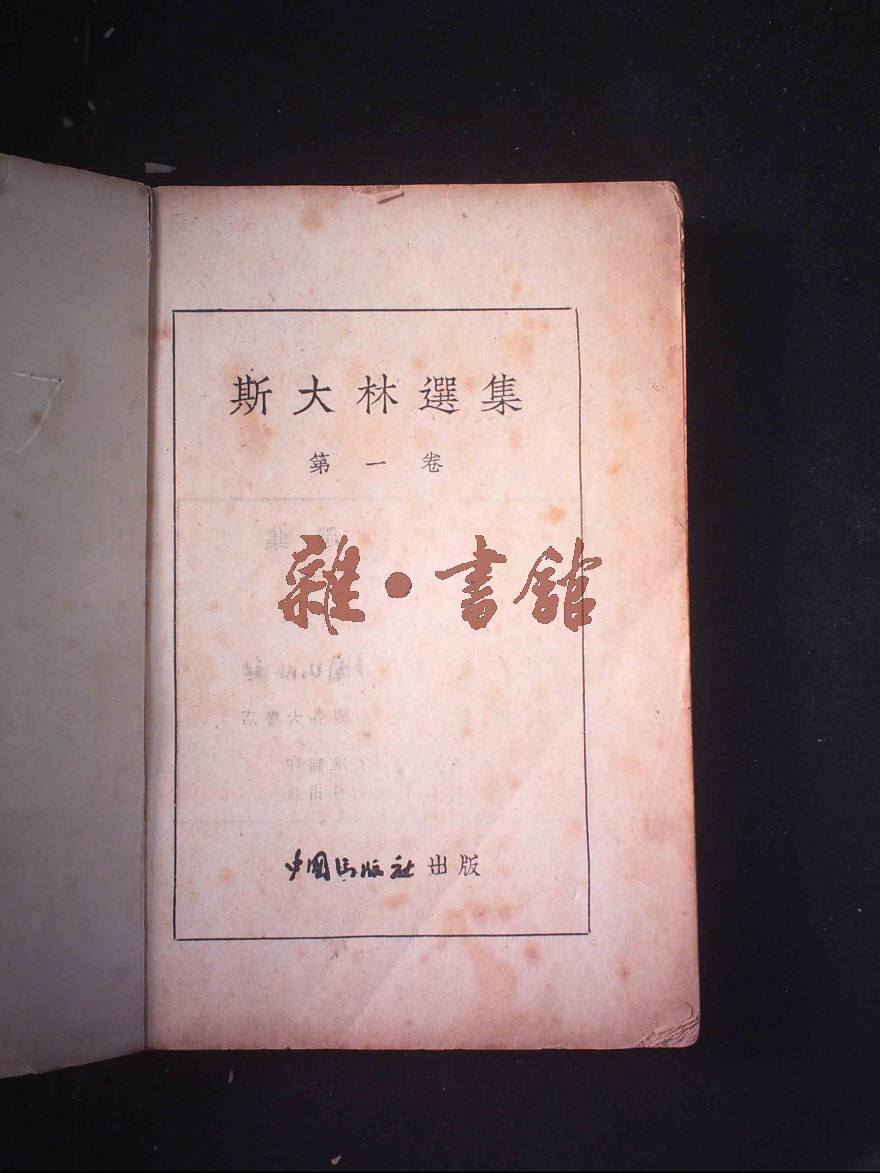 斯大林選集
第一卷
雜·書館
中國出版社出版